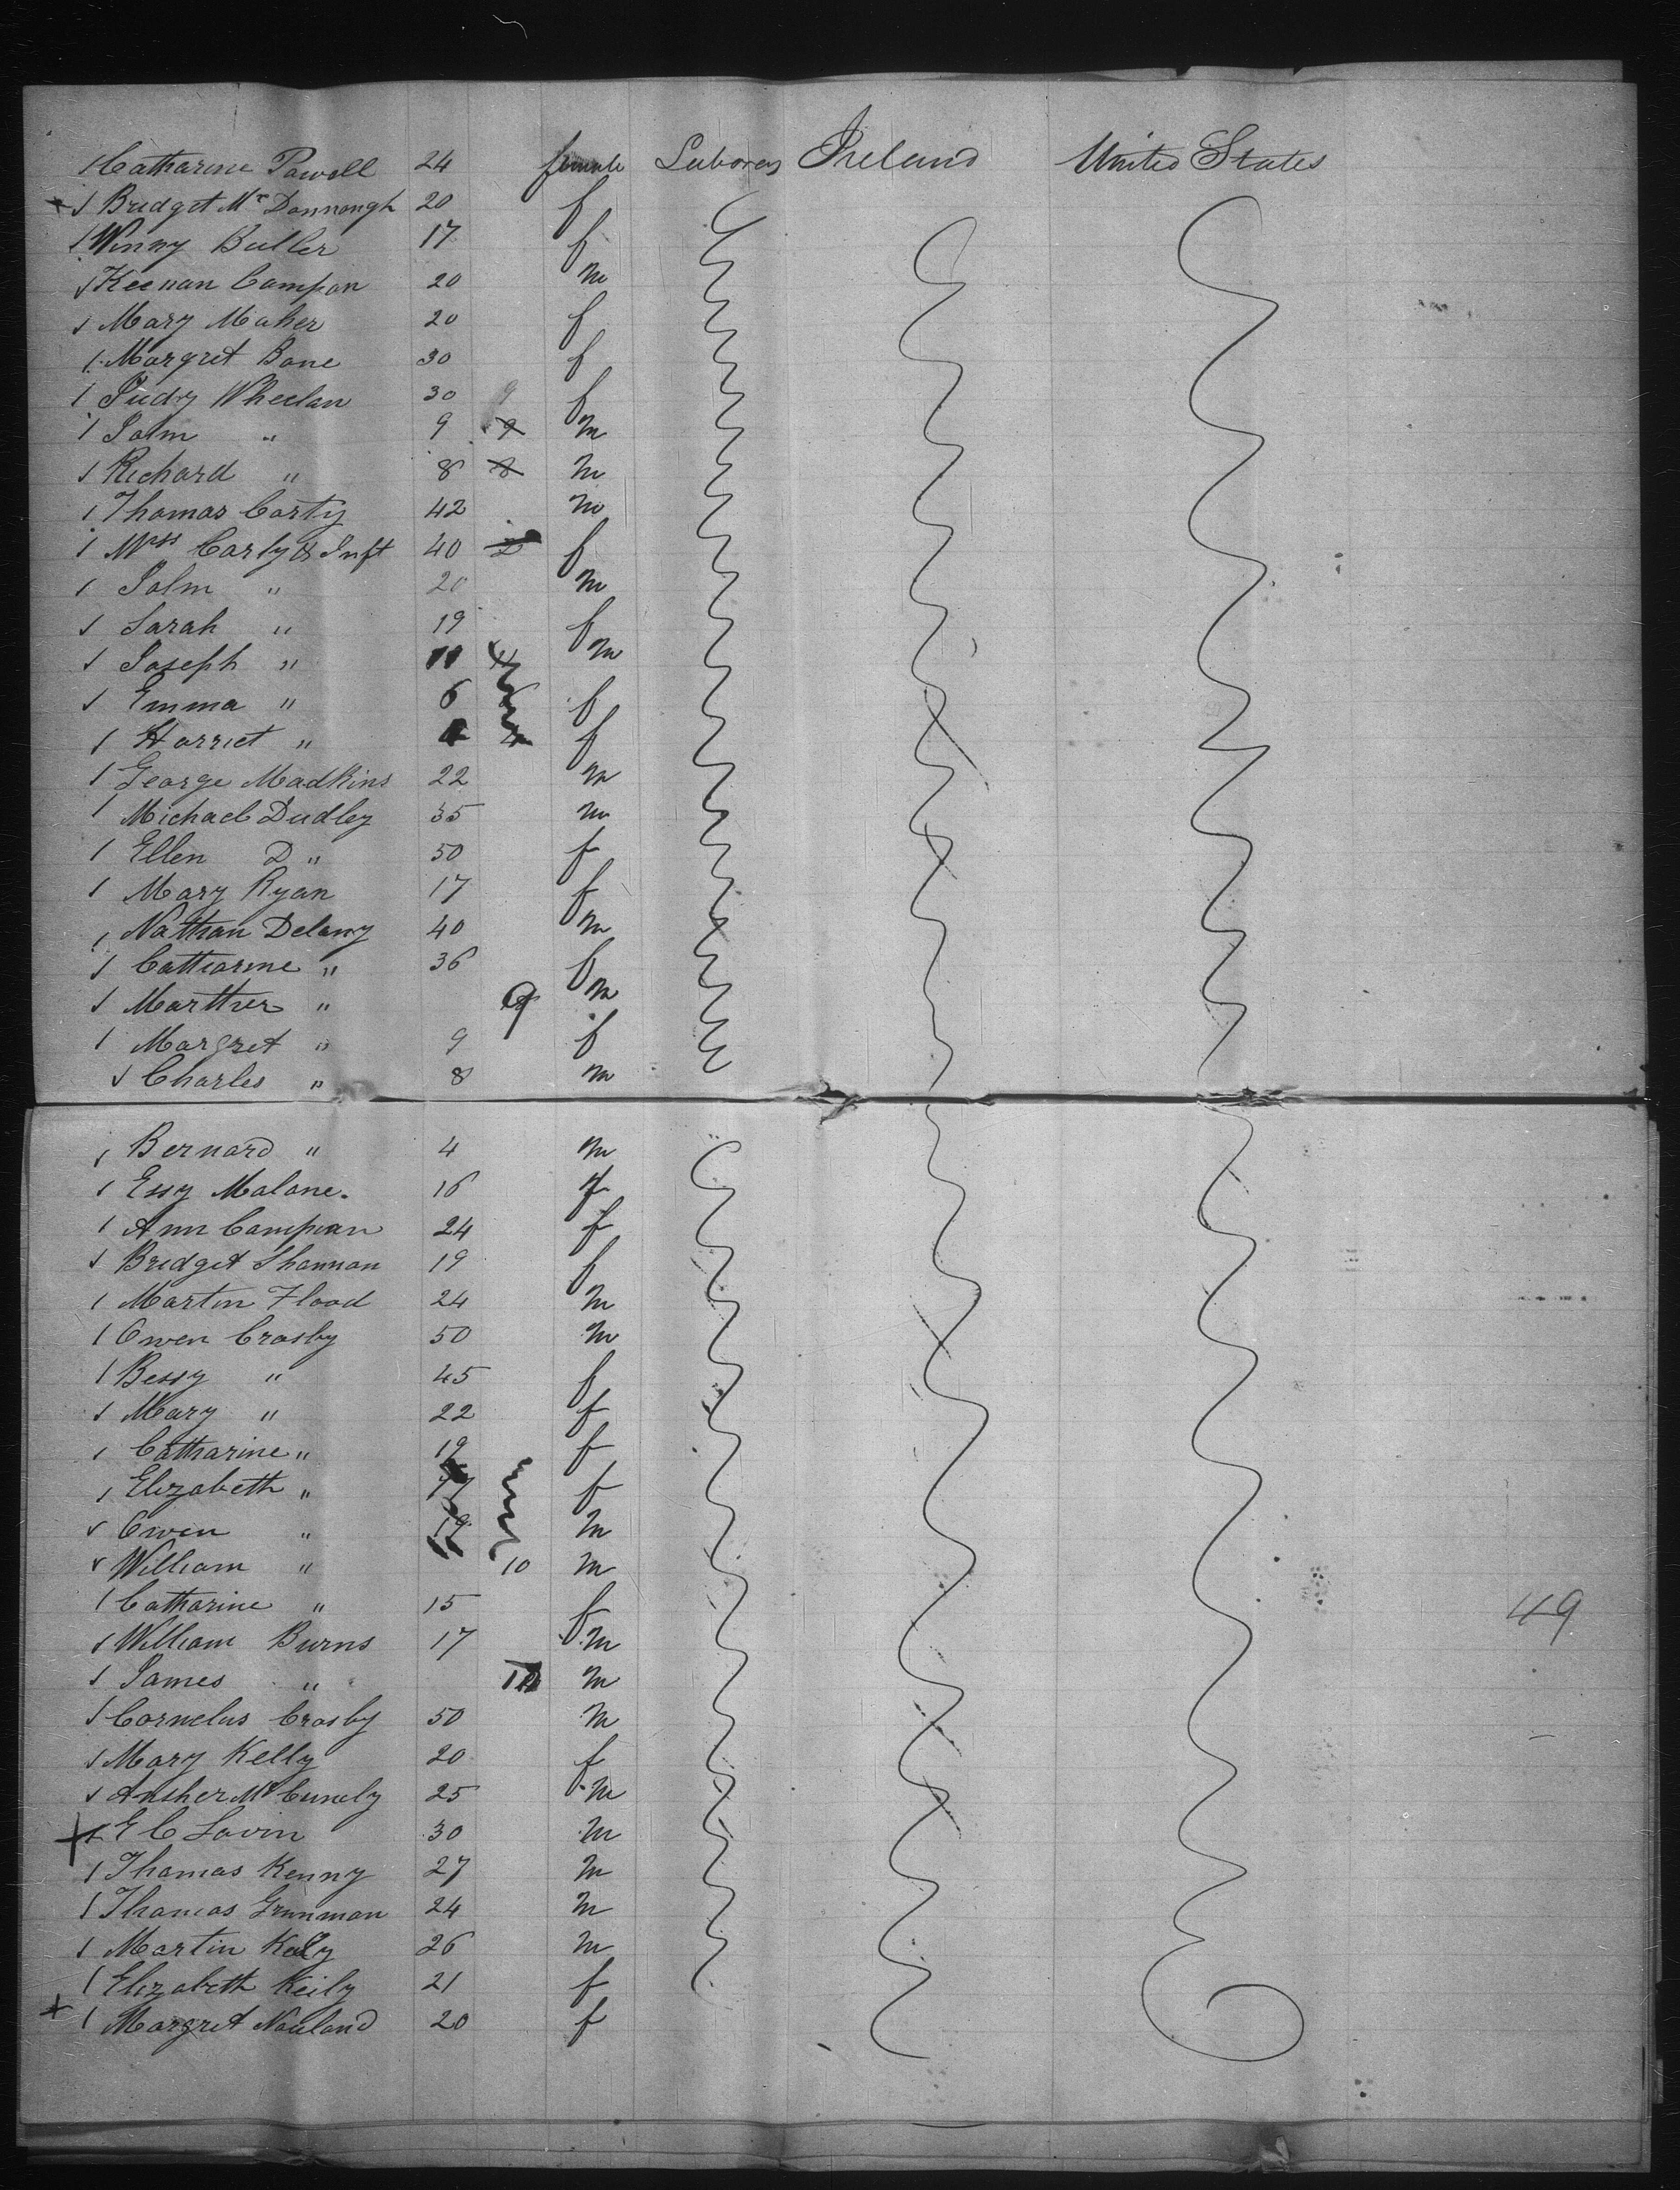 1 Catharine Powell 24 female Laborers Ireland United States
+ 1 Bridget Mc Donnough 20 f
1 Winny Butler 17 f
1 Keenan Campan 20 m
1 Mary Maher 20 f
1 Margret Bane 30 f
1 Judy Whelan 30 9 f
1 John " 9 9 m
1 Richard " 8 8 m
1 Thomas Carty 42 m
1 Mrss Carty & Inft 40 f
1 John " 20 m
1 Sarah " 19 f
1 Joseph " 11 m
1 Emma " 6 f
1 Harriet " 4 4 f
1 George Madkins 22 m
1 Michael Dudley 35 m
1 Ellen D " 50 f
1 Mary Ryan 17 f
1 Nathan Delany 40 m
1 Catharine " 36 f
1 Marther " 9 m
1 Margret " 9 f
1 Charles " 8 m
1 Bernard " 4 m
1 Essy Malone. 16 f
1 Ann Campian 24 f
1 Bridget Shannon 19 f
1 Martin Flood 24 m
1 Owen Crosby 50 m
1 Bessy " 45 f
1 Mary " 22 f
1 Catharine " 19 f
1 Elizabeth " 17 f
1 Owen " m
1 William " 10 m
1 Catharine " 15 f
49
1 William Burns 17 m
1 James " 10 m
1 Cornelus Crosby 50 m
1 Mary Kelly 20 f
1 Ansher Mc Cunely 25 m
+ 1 E C Lavin 30 m
1 Thomas Kenny 27 m
1 Thomas Grunman 24 m
1 Martin Kely 26 m
1 Elizabeth Keily 21 f
+ 1 Margret Nouland 20 f